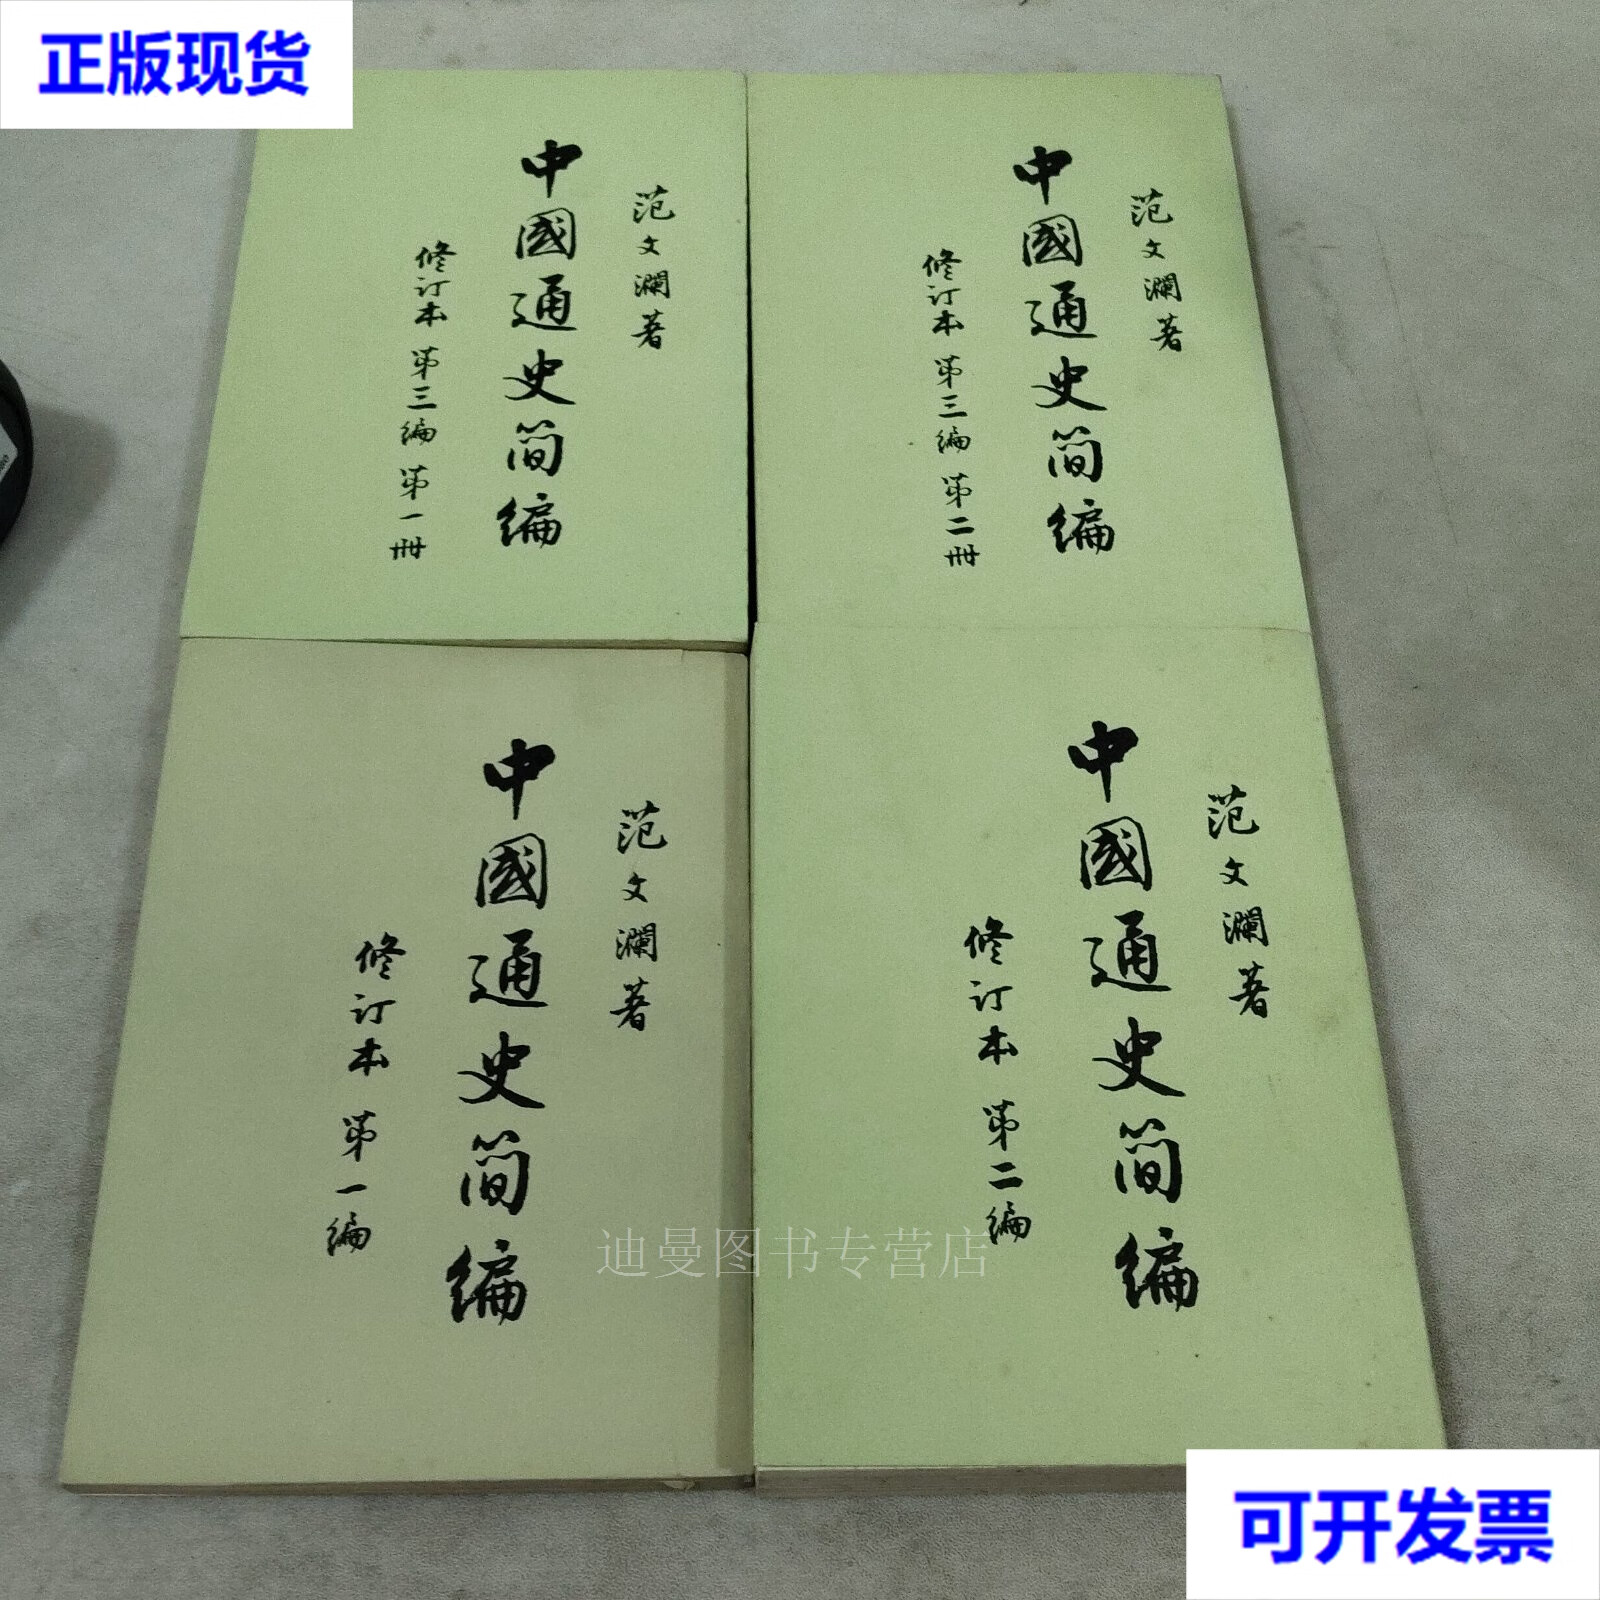 正版现货
范文瀾著
中國通史简编
修订本 第三编 第一册
范文瀾著
中國通史简编
修订本 第三编 第二册
范文瀾著
中國通史简编
修订本 第一编
范文瀾著
中國通史简编
修订本 第二编
迪曼图书专营店
可开发票